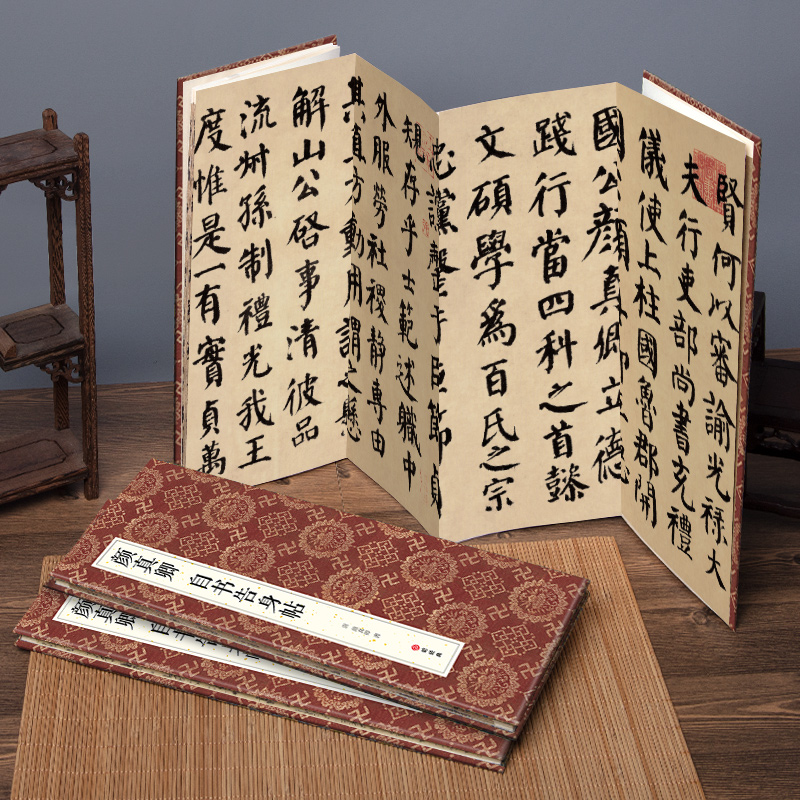 賢何以審諭光祿大
夫行吏部尚書充禮
儀使上柱國魯郡開
國公顏真卿立德
踐行當四科之首懿
文碩學爲百氏之宗
忠讜罄于臣節貞
規存乎士範述職中
外服勞社稷靜專由
其直方動用謂之懸
解山公啓事清彼品
流叔孫制禮光我王
度惟是一有實貞萬
颜真卿 自书告身帖
颜真卿 自书